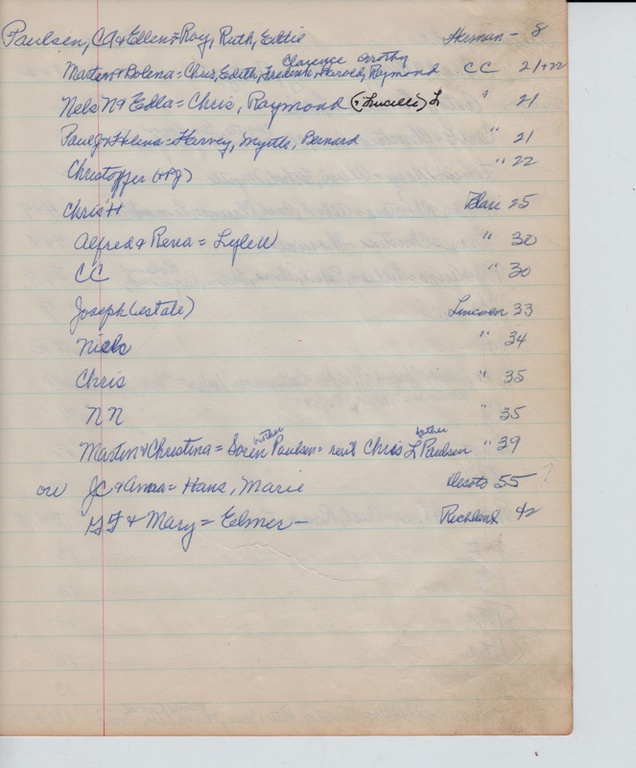 Paulsen, CA & Ellen = Roy, Ruth, Eddie Herman - 8
Clarence Dorothy
Martin & Bolena = Chris, Edith, Frederik, Harold, Raymond CC 21+22
Nels N & Edla = Chris, Raymond (+Lucille) L " 21
Paul J & Helena = Harvey, Myrtle, Bernard " 21
Christoffer " 22
Chris H Blair 25
Alfred & Rena = Lyle W " 30
CC " 30
Joseph (estate) Lincoln 33
Niels " 34
Chris " 35
NN " 35
brother father
Martin & Christina = Soren Paulsen = rent Chris L Paulsen " 39
ow JC & Anna = Hans, Marie Desoto 55 ?
& Mary = Elmer - Richland 42